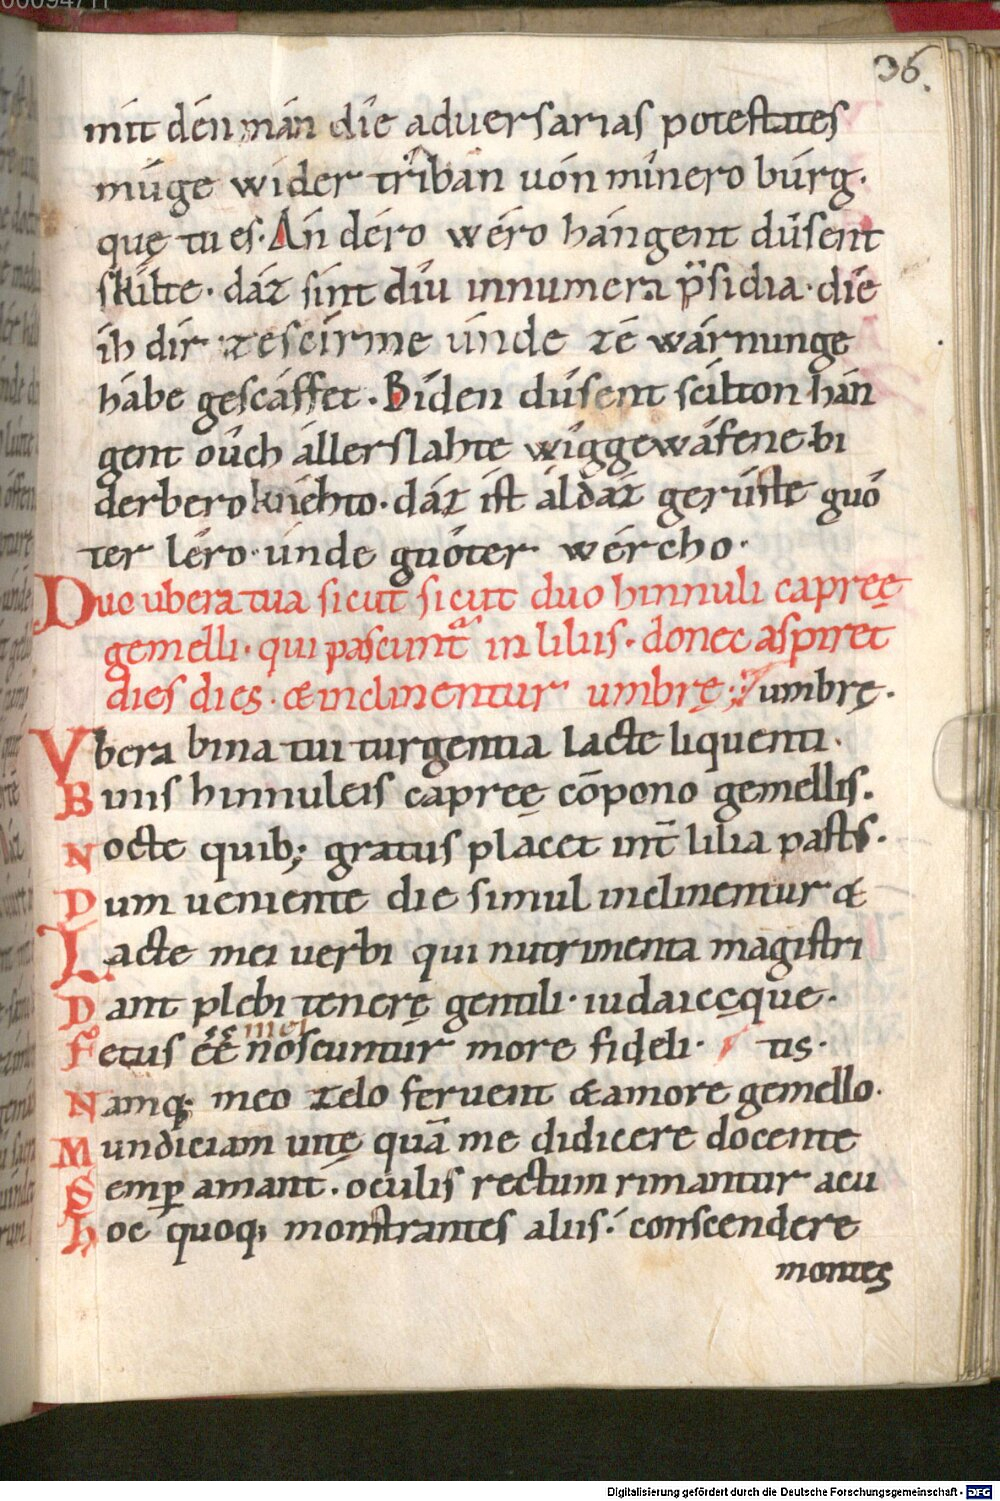 36.
mit dén mán díe aduersarias potestates
múge wider tríban uón mínero búrg.
quę tu es. An déro wéro hángent dûsent
skilte. dáz sint díu innumera p̈sidia. díe
ih dír zescírme únde zé wárnunge
hábe gescáffet. Biden dúsent scilton hán
gent oûch állerslahte wiggewáfene bi
derbero knéhto. dáz ist áldáz gerúste guó
ter léro. únde guóter wércho.
Duo ubera tua sicut sicut duo hinnuli capreę
gemelli. qui pascunt̃ in liliis. donec aspiret
dies dies. & inclinentur umbrę: umbrę.
Vbera bina tui turgentia lacte liquenti.
Binis hinnuleis capreę cōpono gemellis.
Nocte quib; gratus placet int̄ lilia pasts.
Dum ueniente die simul inclinentur &
Lacte mei uerbi qui nutrimenta magistri
Dant plebi tenerę gentili. iudaicęque.
mei
Fetus éé noscuntur more fideli. tis.
Namq; meo zelo feruent & amore gemello.
Mundiciam uitę quā me didicere docente
Semp amant. oculis rectum rimantur acu
hoc quoq; monstrantes aliis. conscendere
montes
Digitalisierung gefördert durch die Deutsche Forschungsgemeinschaft - DFG